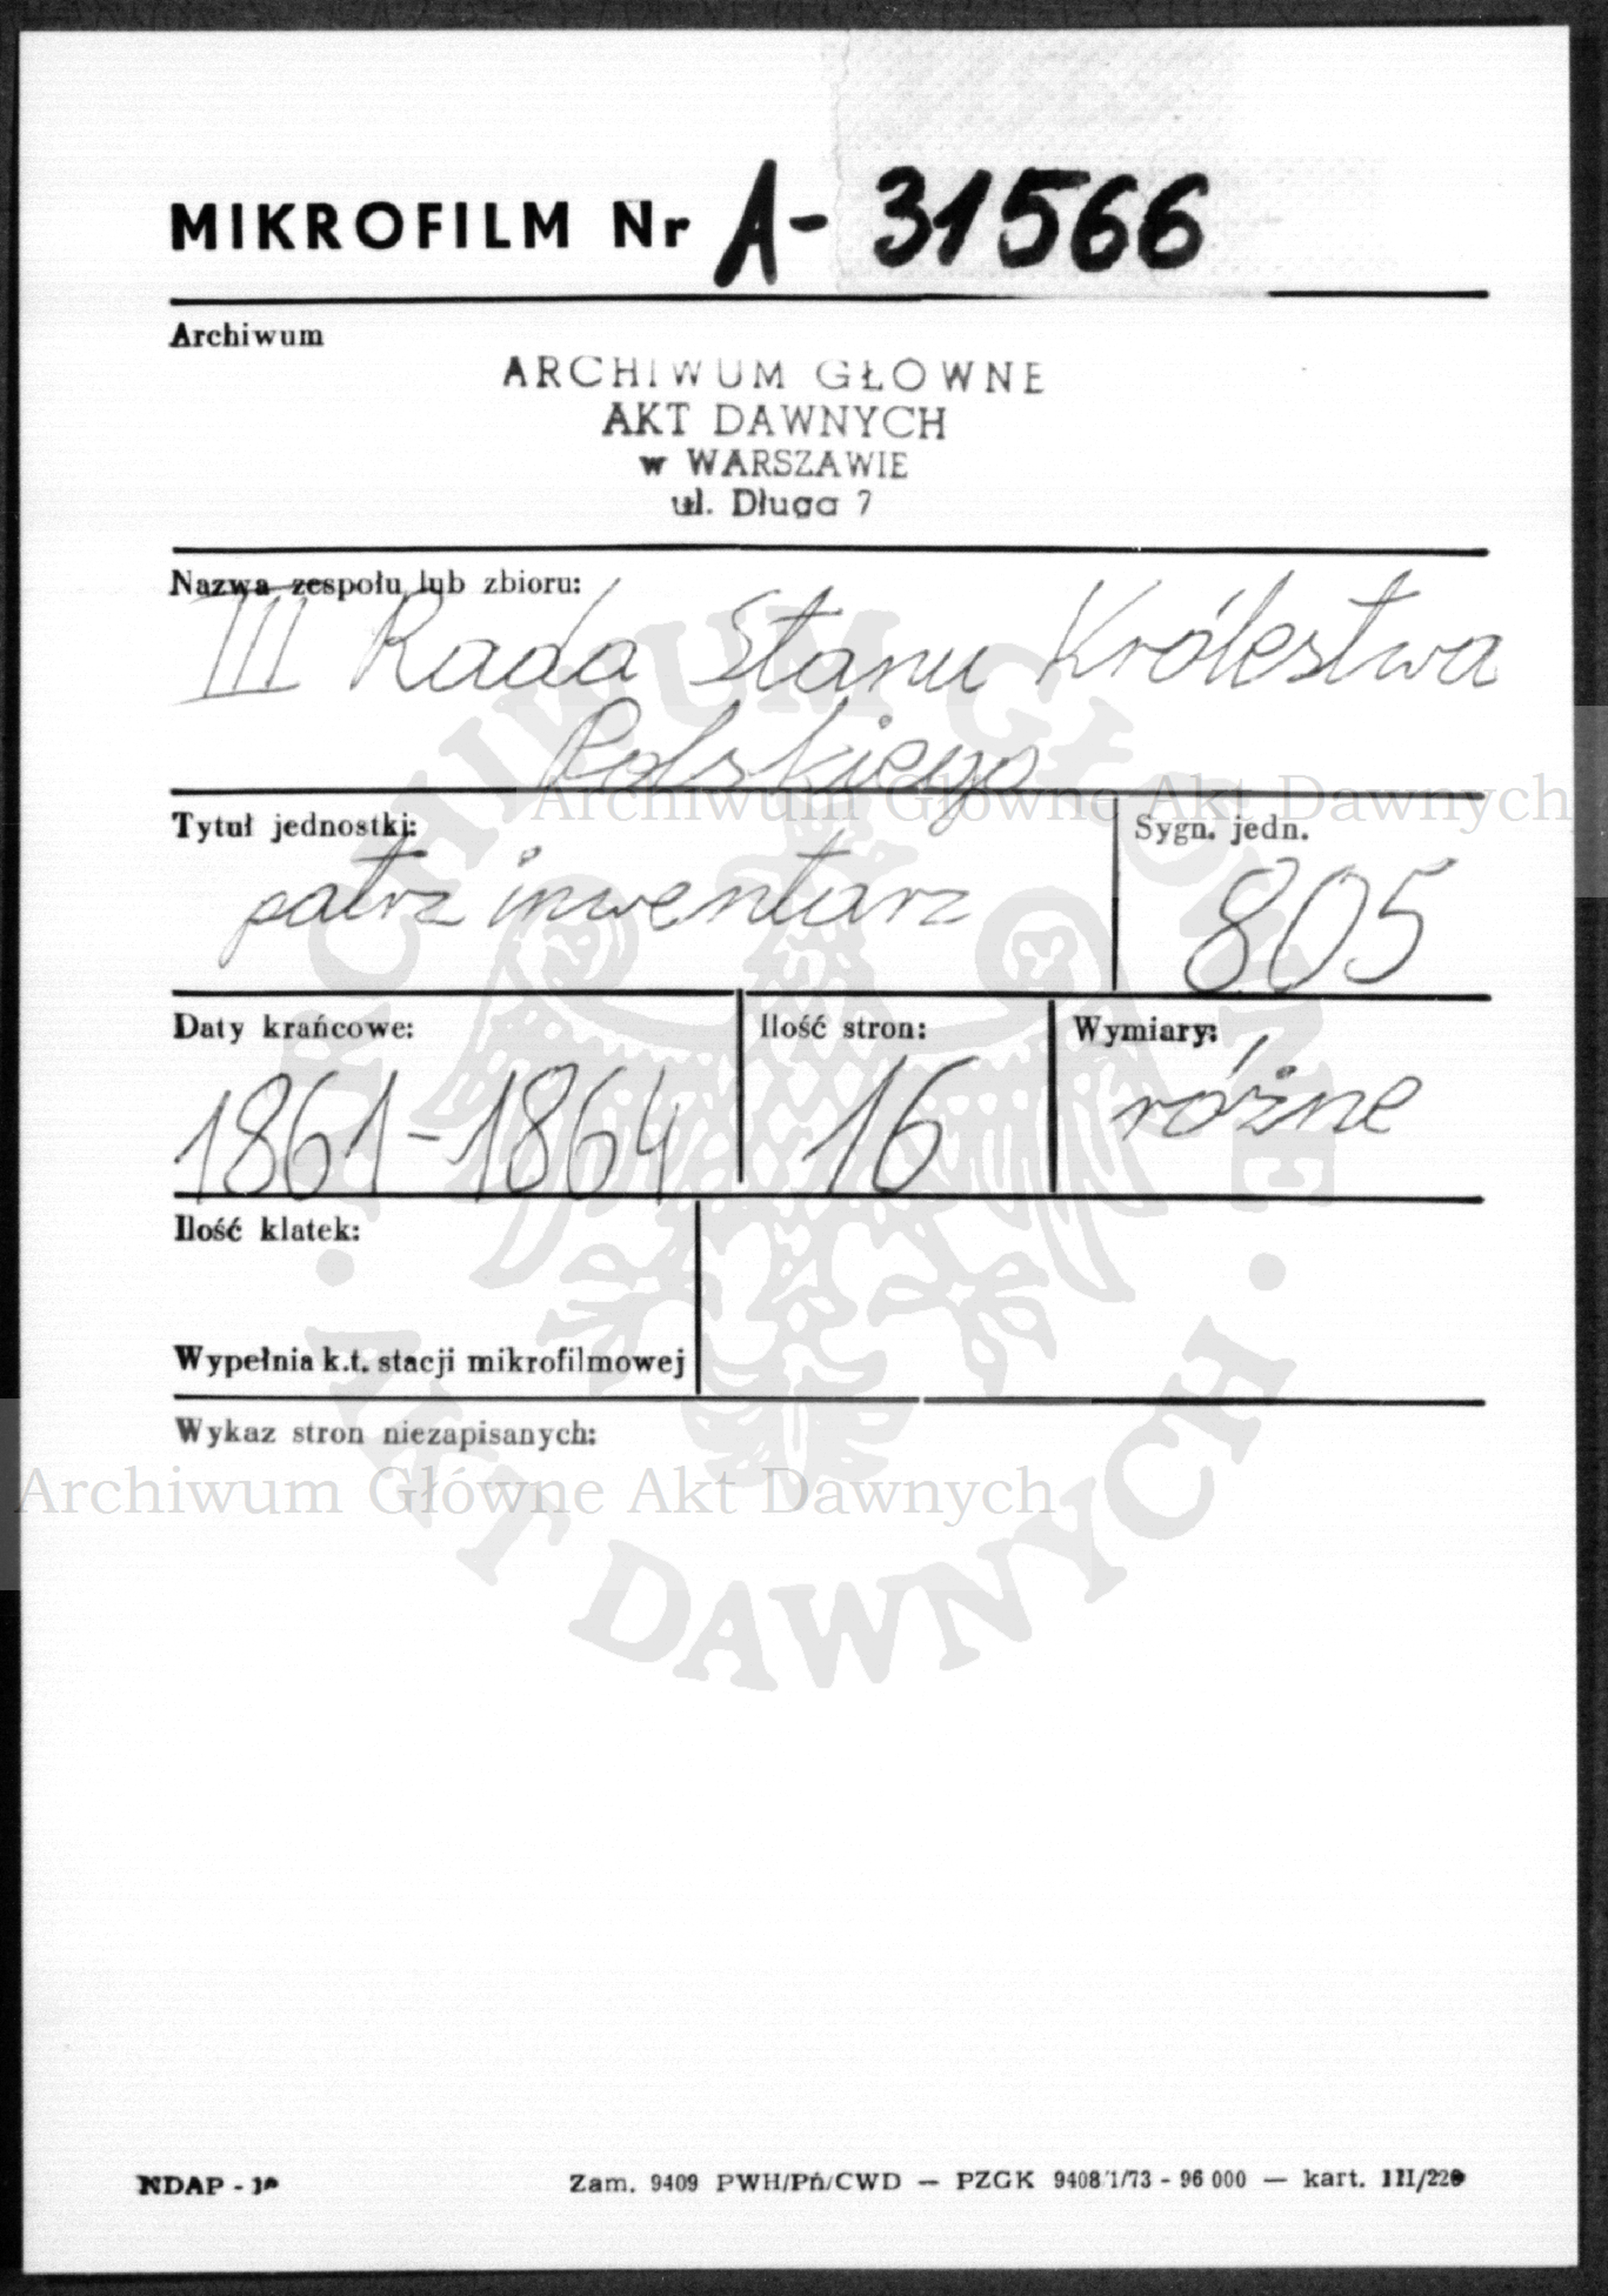 MIKROFILM Nr A-31566
Archiwum
ARCHIWUM GŁOWNE
AKT DAWNYCH
w WARSZAWIE
ul. Długa 7
Nazwa zespołu lub zbioru:
III Rada Stanu Królestwa
Polskiego
Archiwum Główne Akt Dawnych
Tytuł jednostki:
Sygn. jedn.
patrz inwentarz
805
Daty krańcowe:
Ilość stron:
Wymiary:
1861-1864
16
różne
Ilość klatek:
Wypełnia k.t. stacji mikrofilmowej
Wykaz stron niezapisanych:
Archiwum Główne Akt Dawnych
ARCHIWUM GŁÓWNE · AKT DAWNYCH ·
Zam. 9409 PWH/Pń/CWD — PZGK 9408/1/73 - 96 000 — kart.